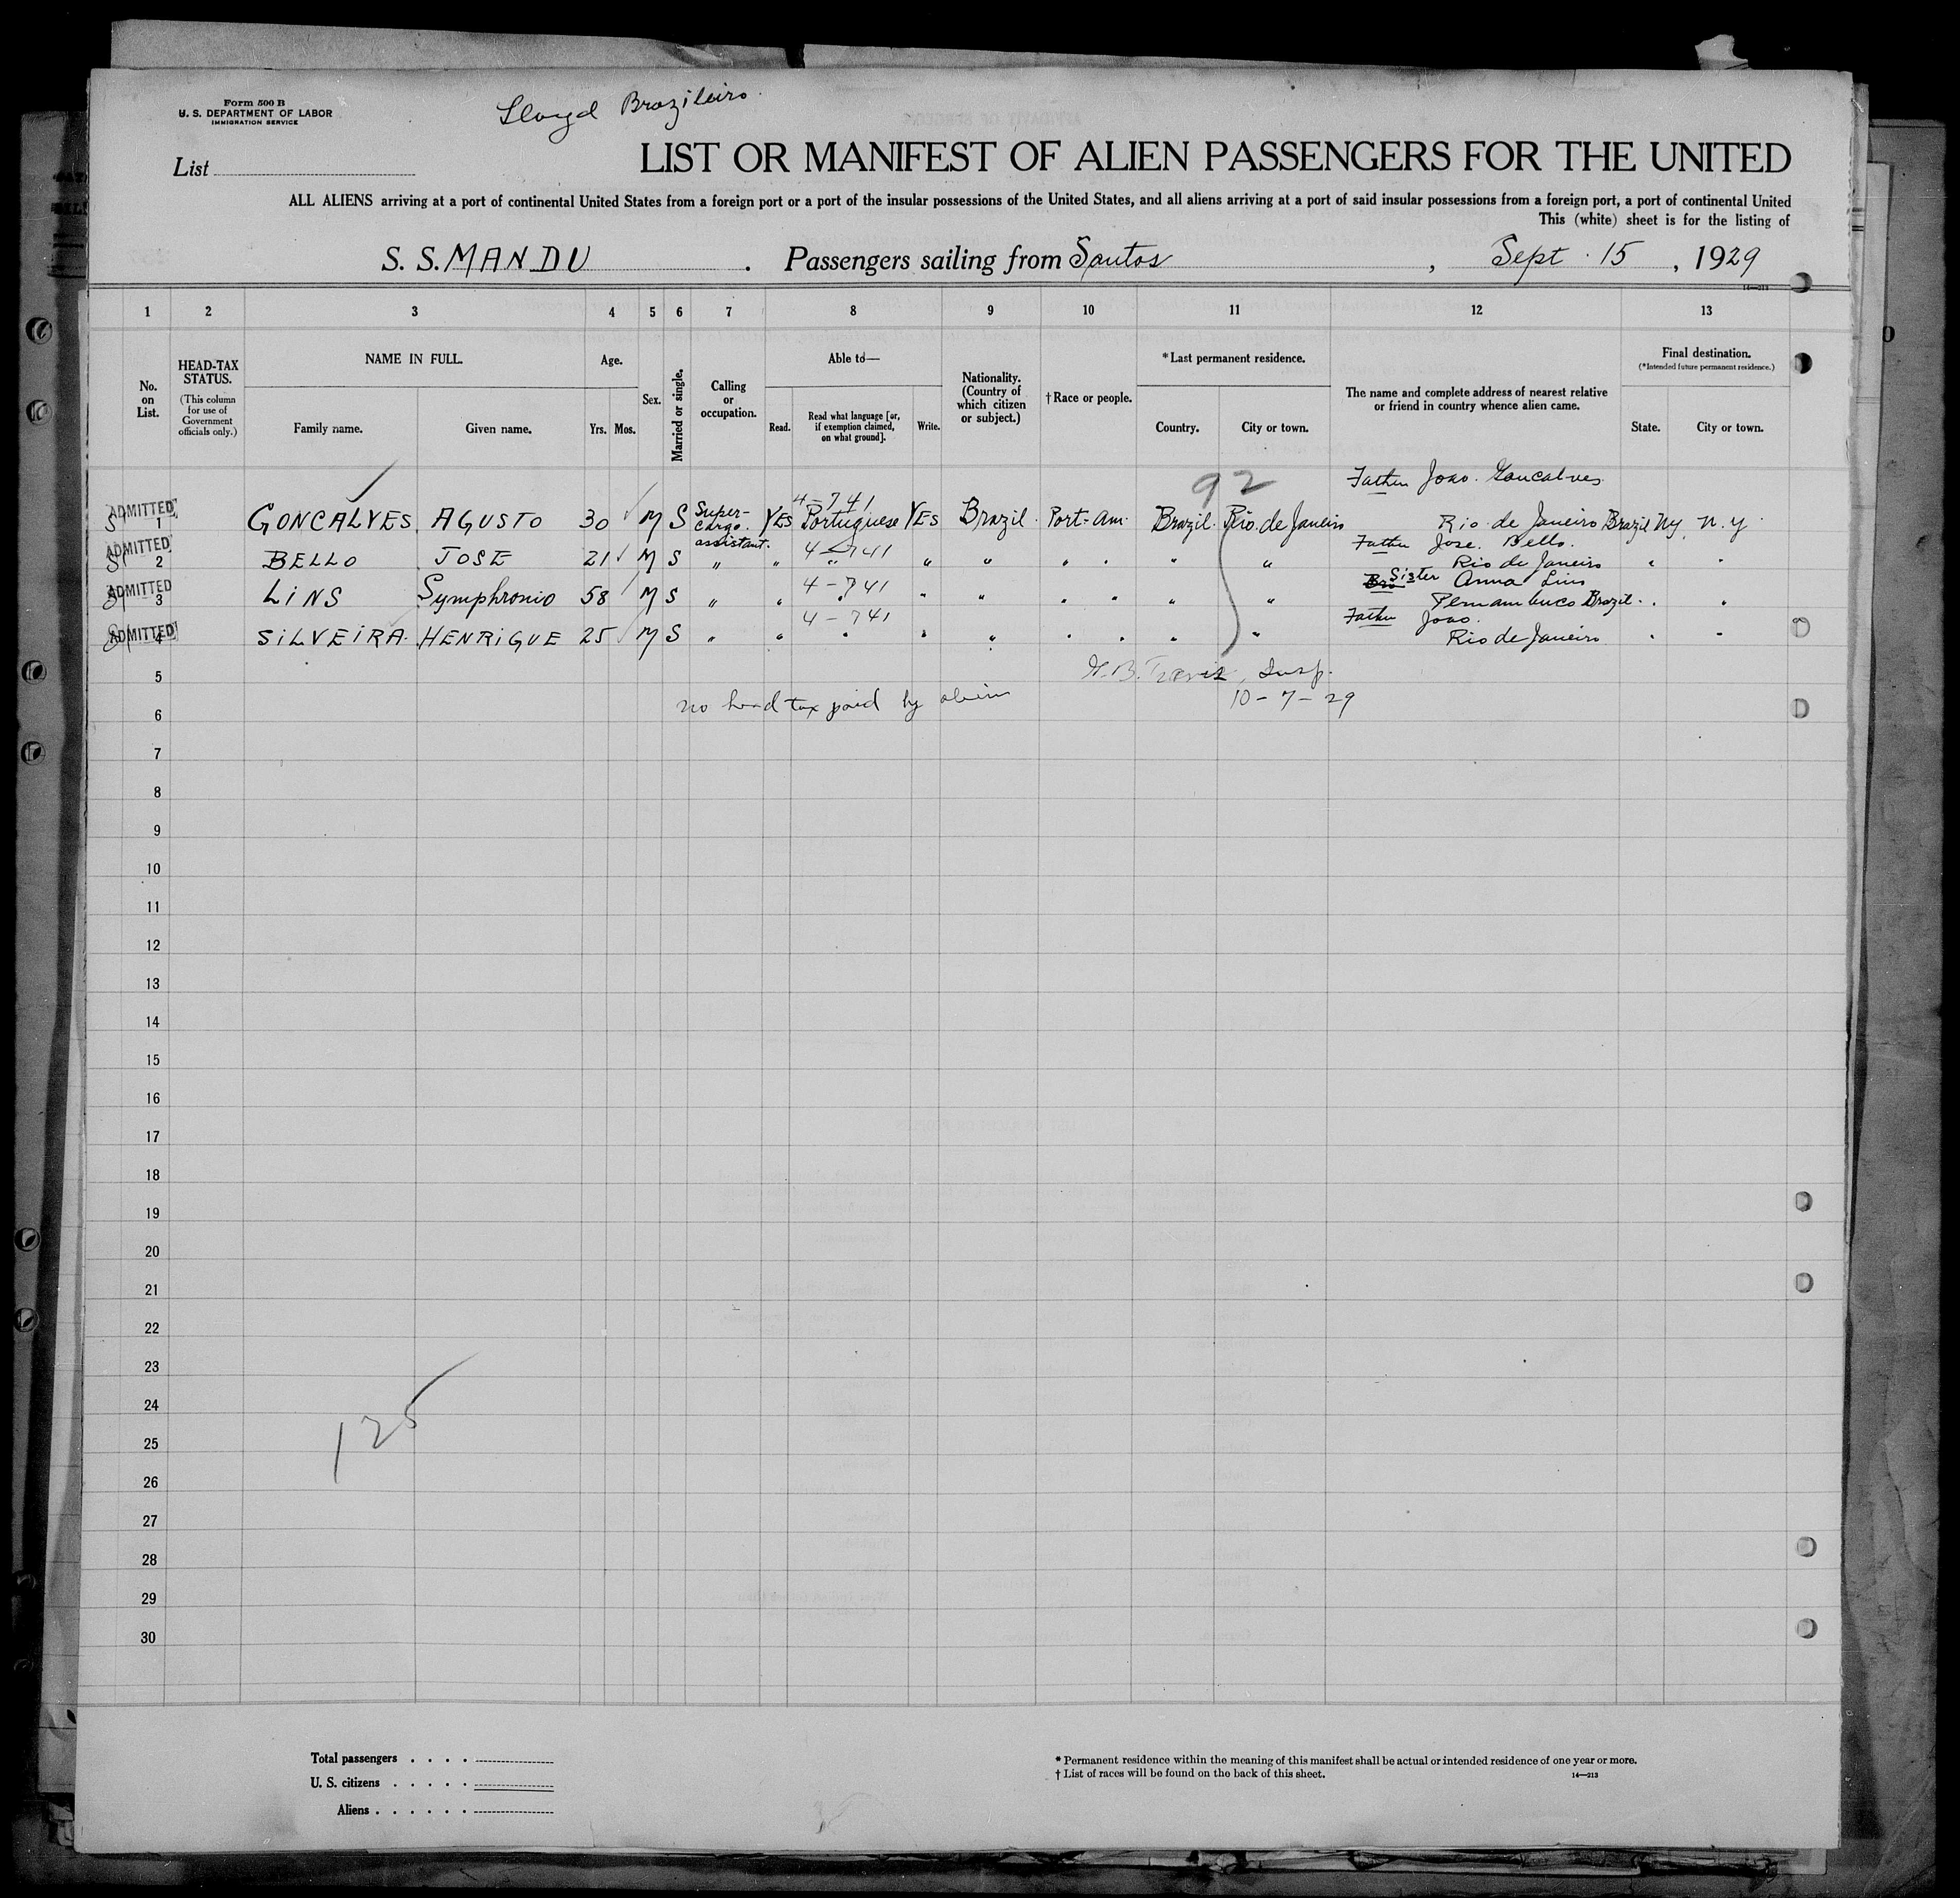 Form 500 B
U. S. DEPARTMENT OF LABOR
IMMIGRATION SERVICE
Lloyd Brazileiro.
List
LIST OR MANIFEST OF ALIEN PASSENGERS FOR THE UNITED
ALL ALIENS arriving at a port of continental United States from a foreign port or a port of the insular possessions of the United States, and all aliens arriving at a port of said insular possessions from a foreign port, a port of continental United
This (white) sheet is for the listing of
S. S. MANDU . Passengers sailing from Santos , Sept. 15 , 1929
14—213
1 2 3 4 5 6 7 8 9 10 11 12 13
No. on List.
HEAD-TAX STATUS.
(This column for use of Government officials only.)
NAME IN FULL.
Family name. Given name.
Age.
Yrs. Mos.
Sex.
Married or single.
Calling or occupation.
Able to—
Read. Read what language [or, if exemption claimed, on what ground]. Write.
Nationality. (Country of which citizen or subject.)
†Race or people.
*Last permanent residence.
Country. City or town.
The name and complete address of nearest relative or friend in country whence alien came.
Final destination.
(*Intended future permanent residence.)
State. City or town.
92
Father Joao. Goncalves.
4-741
ADMITTED 1 GONCALVES. AGUSTO 30 M S Super-cargo. assistant. YES Portuguese YES Brazil. Port-Am. Brazil. Rio. de Janeiro Rio de Janeiro Brazil Ny. N.Y.
4-741 Father Jose. Bello.
ADMITTED 2 BELLO JOSE 21 M S " " " " " " " " " Rio de Janeiro " "
4-741 Bro Sister Anna Lins
ADMITTED 3 LINS Symphronio 58 M S " " " " " " " " " Pernambuco Brazil. " "
4-741 Father Joao.
ADMITTED 4 SILVEIRA. HENRIQUE 25 M S " " " " " " " " " Rio de Janeiro " "
5 Insp.
no head tax paid by 10-7-29
6
7
8
9
10
11
12
13
14
15
16
17
18
19
20
21
22
23
24
125
25
26
27
28
29
30
Total passengers . . . .
U. S. citizens . . . . .
Aliens . . . . . .
* Permanent residence within the meaning of this manifest shall be actual or intended residence of one year or more.
† List of races will be found on the back of this sheet.
14—213